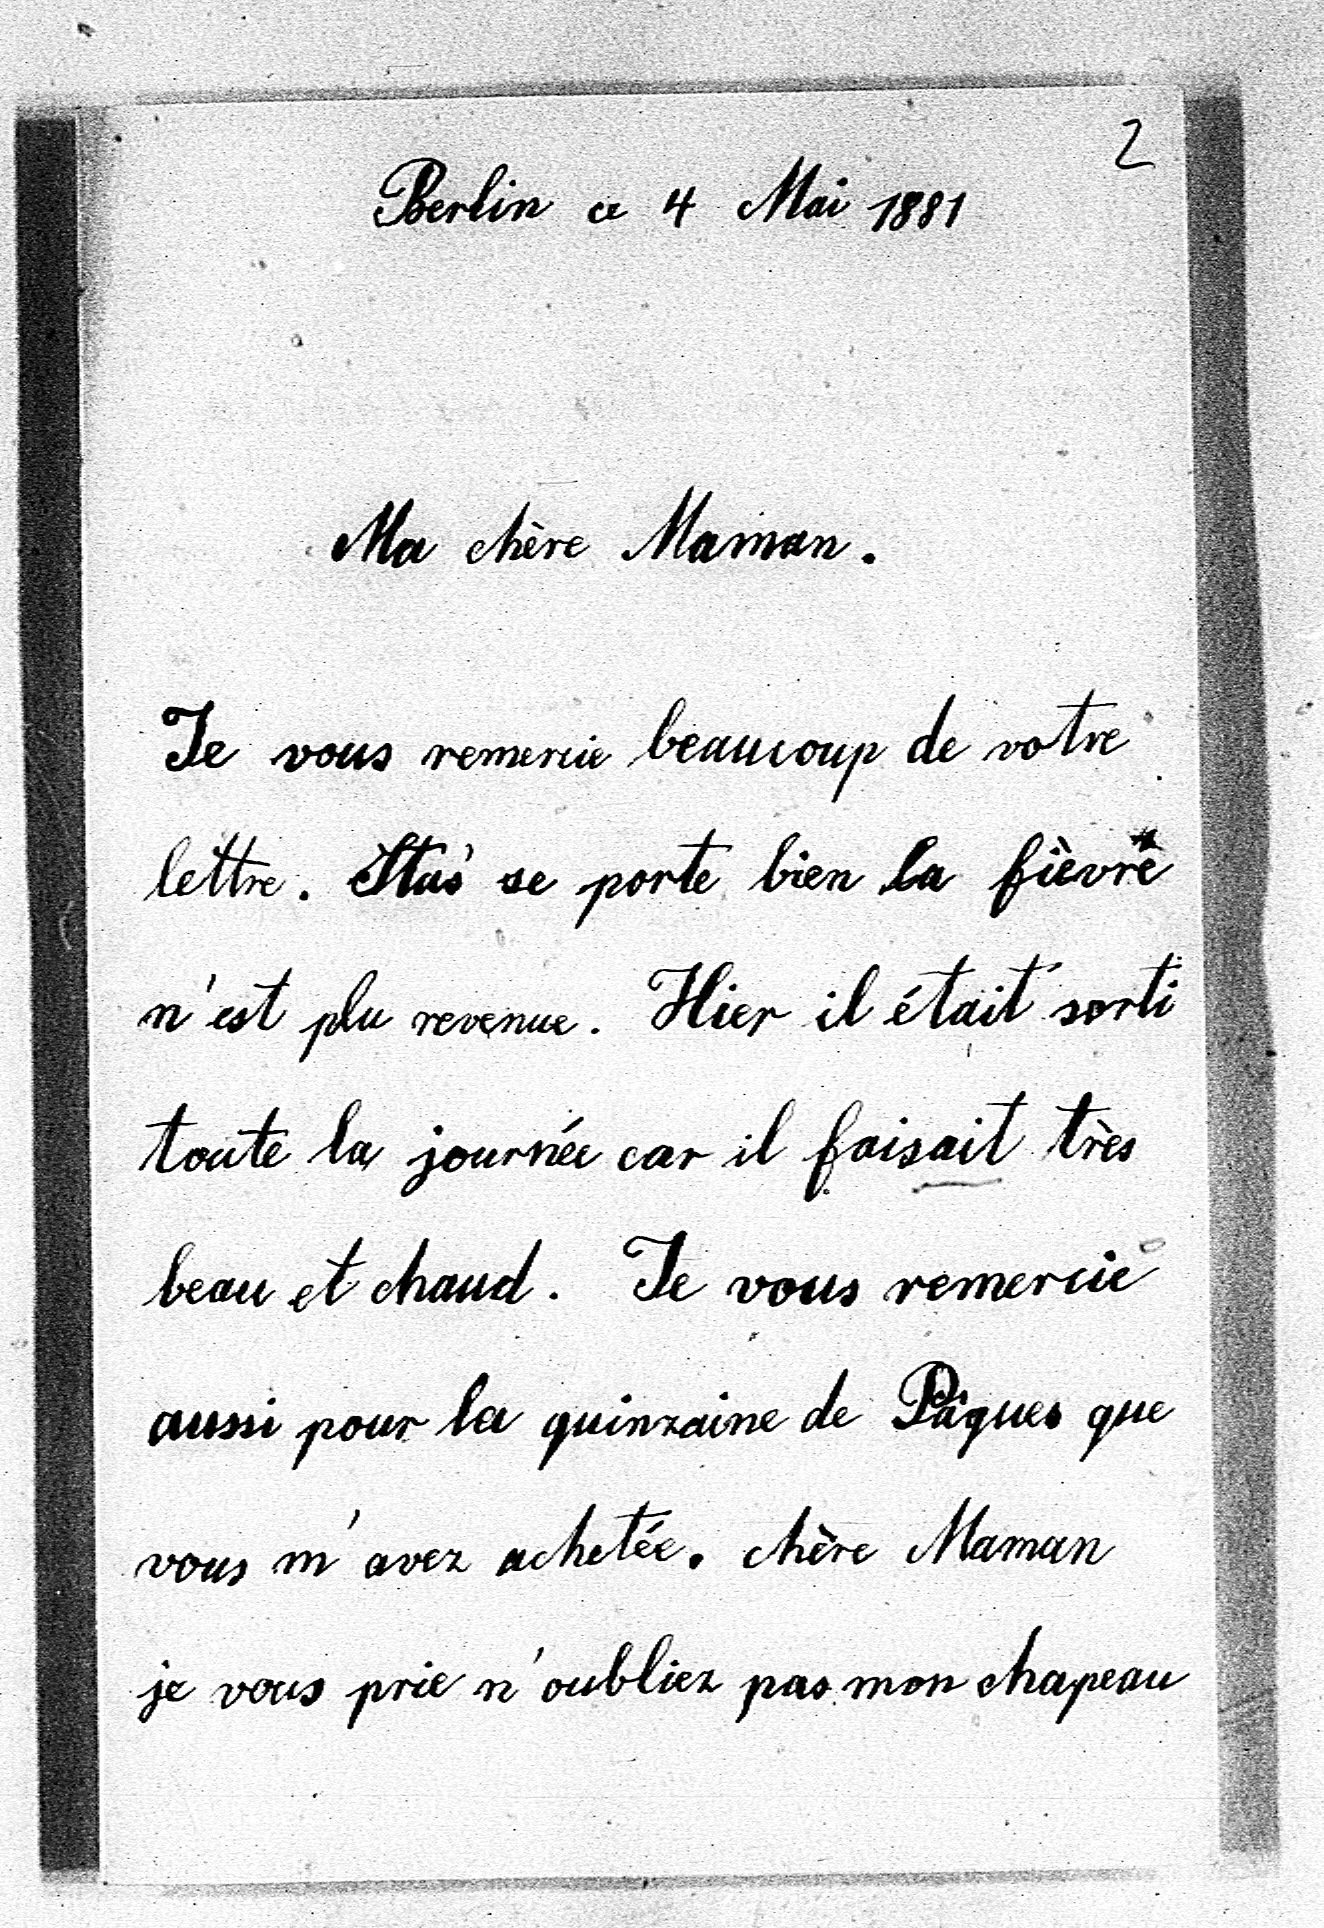 2
Berlin ce 4 Mai 1881
Ma chère Maman.
Je vous remercie beaucoup de votre
lettre. Staś se porte bien la fièvre
n'est plu revenue. Hier il était sorti
toute la journée car il faisait très
beau et chaud. Je vous remercie
aussi pour la quinzaine de Pâques que
vous m'avez achetée. chère Maman
je vous prie n'oubliez pas mon chapeau